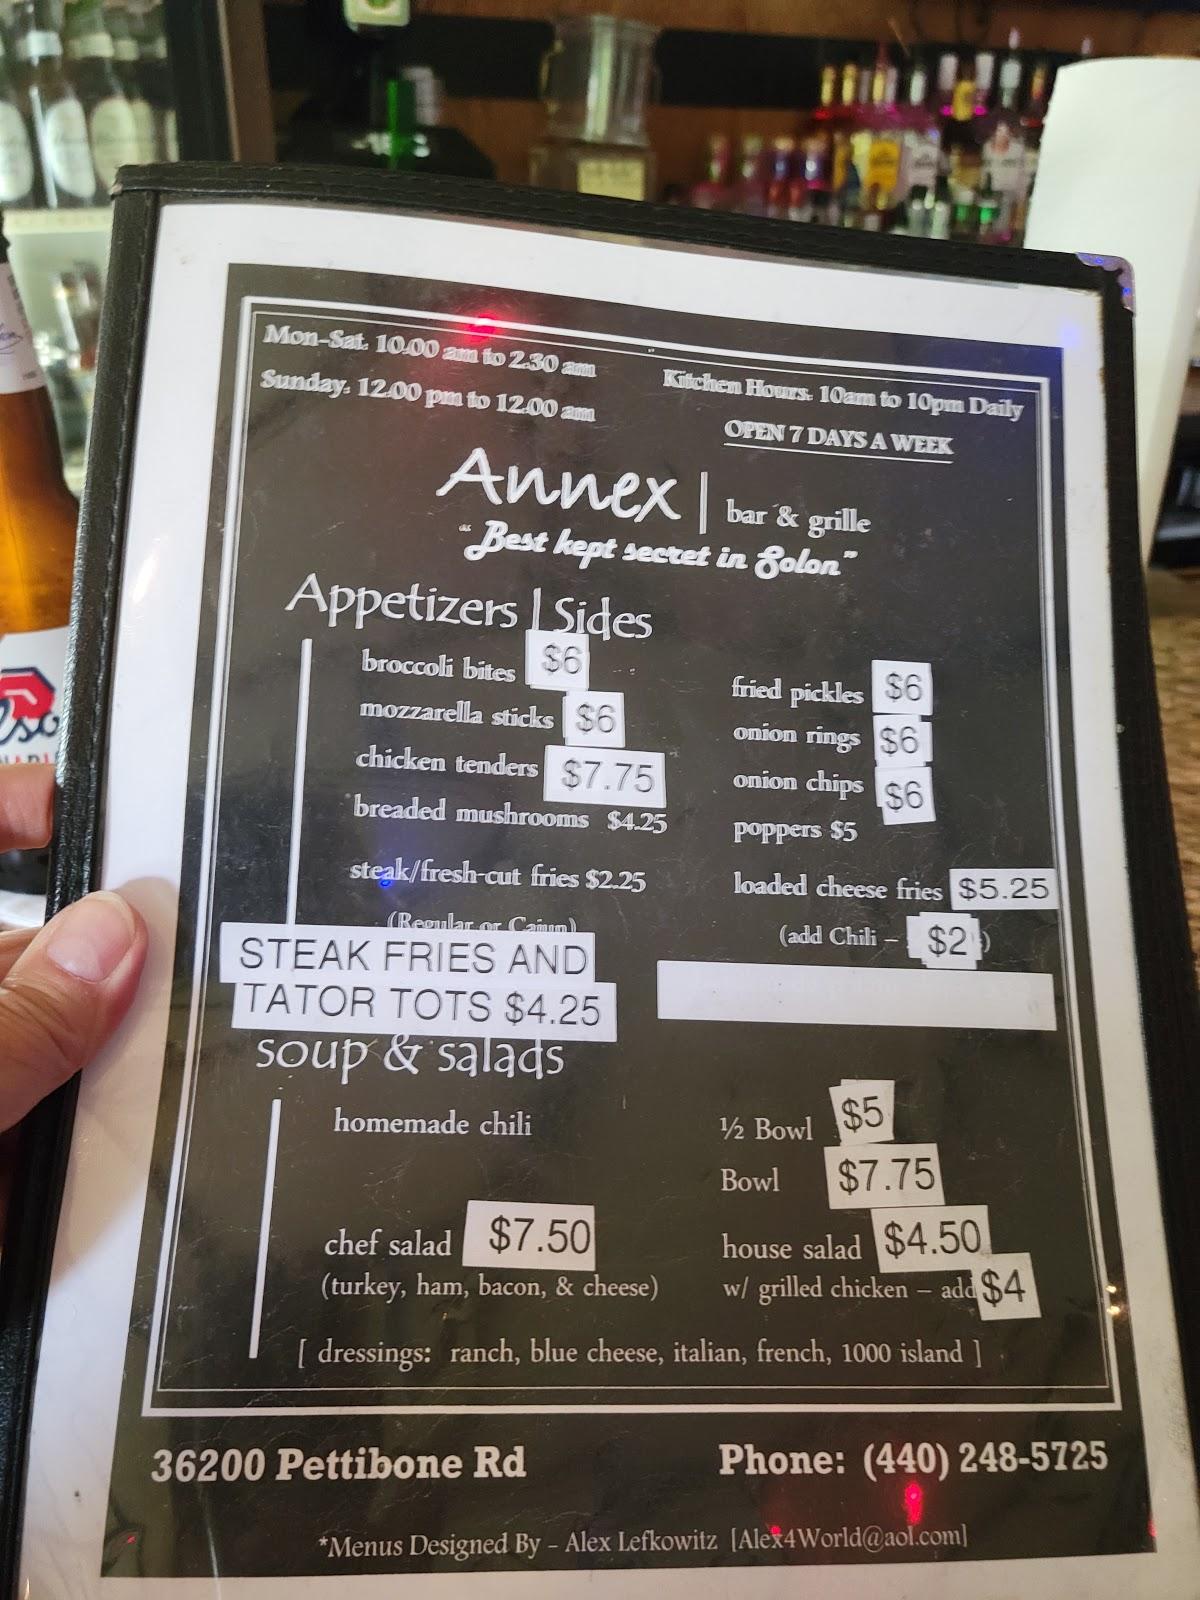 Mon-Sat. 10.00 am to 2.30 am
Sunday. 12.00 pm to 12.00 am
Kitchen Hours. 10am to 10pm Daily
OPEN 7 DAYS A WEEK
Annex | bar & grille
"Best kept secret in Solon"
Appetizers | Sides
broccoli bites $6
mozzarella sticks $6
chicken tenders $7.75
breaded mushrooms $4.25
steak/fresh-cut fries $2.25
(Regular or Cajun)
STEAK FRIES AND
TATOR TOTS $4.25
fried pickles $6
onion rings $6
onion chips $6
poppers $5
loaded cheese fries $5.25
(add Chili – $2 )
soup & salads
homemade chili
½ Bowl $5
Bowl $7.75
chef salad $7.50
(turkey, ham, bacon, & cheese)
house salad $4.50
w/ grilled chicken – add $4
[ dressings: ranch, blue cheese, italian, french, 1000 island ]
36200 Pettibone Rd
Phone: (440) 248-5725
*Menus Designed By - Alex Lefkowitz [Alex4World@aol.com]